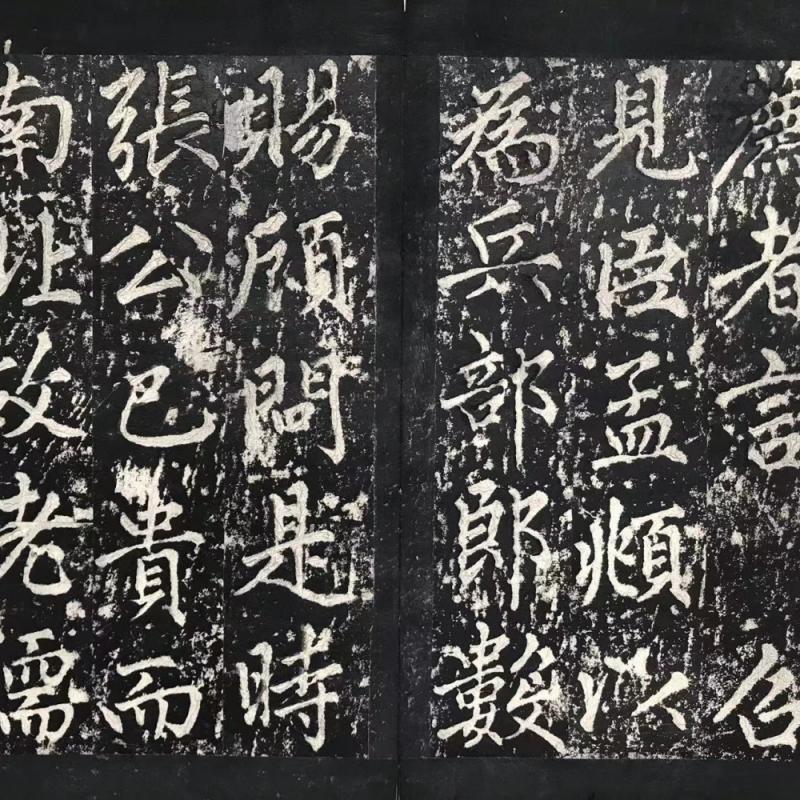 薦者詔召
見臣孟頫以
為兵部郎數
賜顧問是時
張公已貴而
南北故老儒